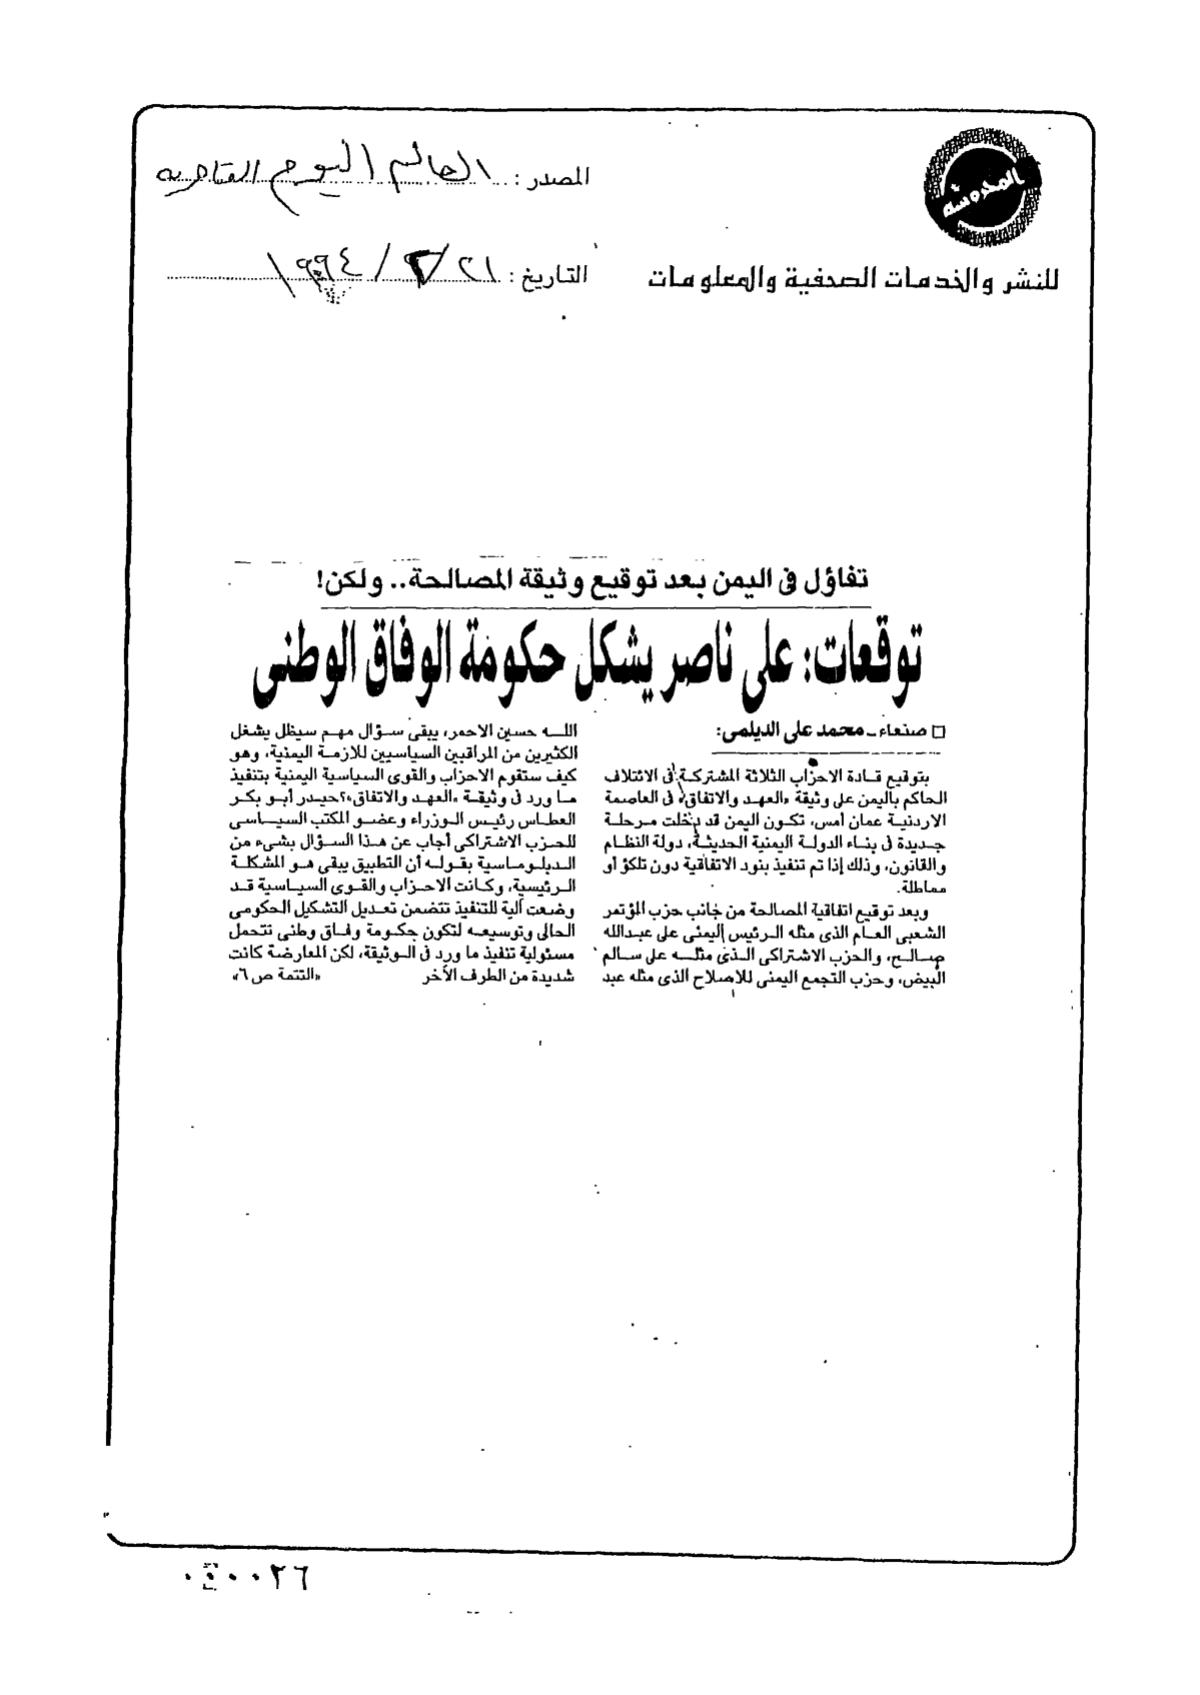 المحروسة
المصدر : العالم اليوم القاهرية
للنشر والخدمات الصحفية والمعلومات
التاريخ : ٢١ / ٢ / ١٩٩٤
تفاؤل فى اليمن بعد توقيع وثيقة المصالحة.. ولكن!
توقعات: على ناصر يشكل حكومة الوفاق الوطنى
□ صنعاء ـ محمد على الديلمى:
بتوقيع قادة الاحزاب الثلاثة المشتركة فى الائتلاف
الحاكم باليمن على وثيقة «العهد والاتفاق» فى العاصمة
الاردنية عمان أمس، تكون اليمن قد دخلت مرحلة
جديدة فى بناء الدولة اليمنية الحديثة، دولة النظام
والقانون، وذلك إذا تم تنفيذ بنود الاتفاقية دون تلكؤ أو
مماطلة.
وبعد توقيع اتفاقية المصالحة من جانب حزب المؤتمر
الشعبى العام الذى مثله الرئيس اليمنى على عبدالله
صالح، والحزب الاشتراكى الذى مثله على سالم
البيض، وحزب التجمع اليمنى للاصلاح الذى مثله عبد
الله حسين الاحمر، يبقى سؤال مهم سيظل يشغل
الكثيرين من المراقبين السياسيين للازمة اليمنية، وهو
كيف ستقوم الاحزاب والقوى السياسية اليمنية بتنفيذ
ما ورد فى وثيقة «العهد والاتفاق»؟ حيدر أبو بكر
العطاس رئيس الوزراء وعضو المكتب السياسى
للحزب الاشتراكى أجاب عن هذا السؤال بشىء من
الدبلوماسية بقوله أن التطبيق يبقى هو المشكلة
الرئيسية، وكانت الاحزاب والقوى السياسية قد
وضعت آلية للتنفيذ تتضمن تعديل التشكيل الحكومى
الحالى وتوسيعه لتكون حكومة وفاق وطنى تتحمل
مسئولية تنفيذ ما ورد فى الوثيقة، لكن المعارضة كانت
شديدة من الطرف الآخر «التتمة ص٦»